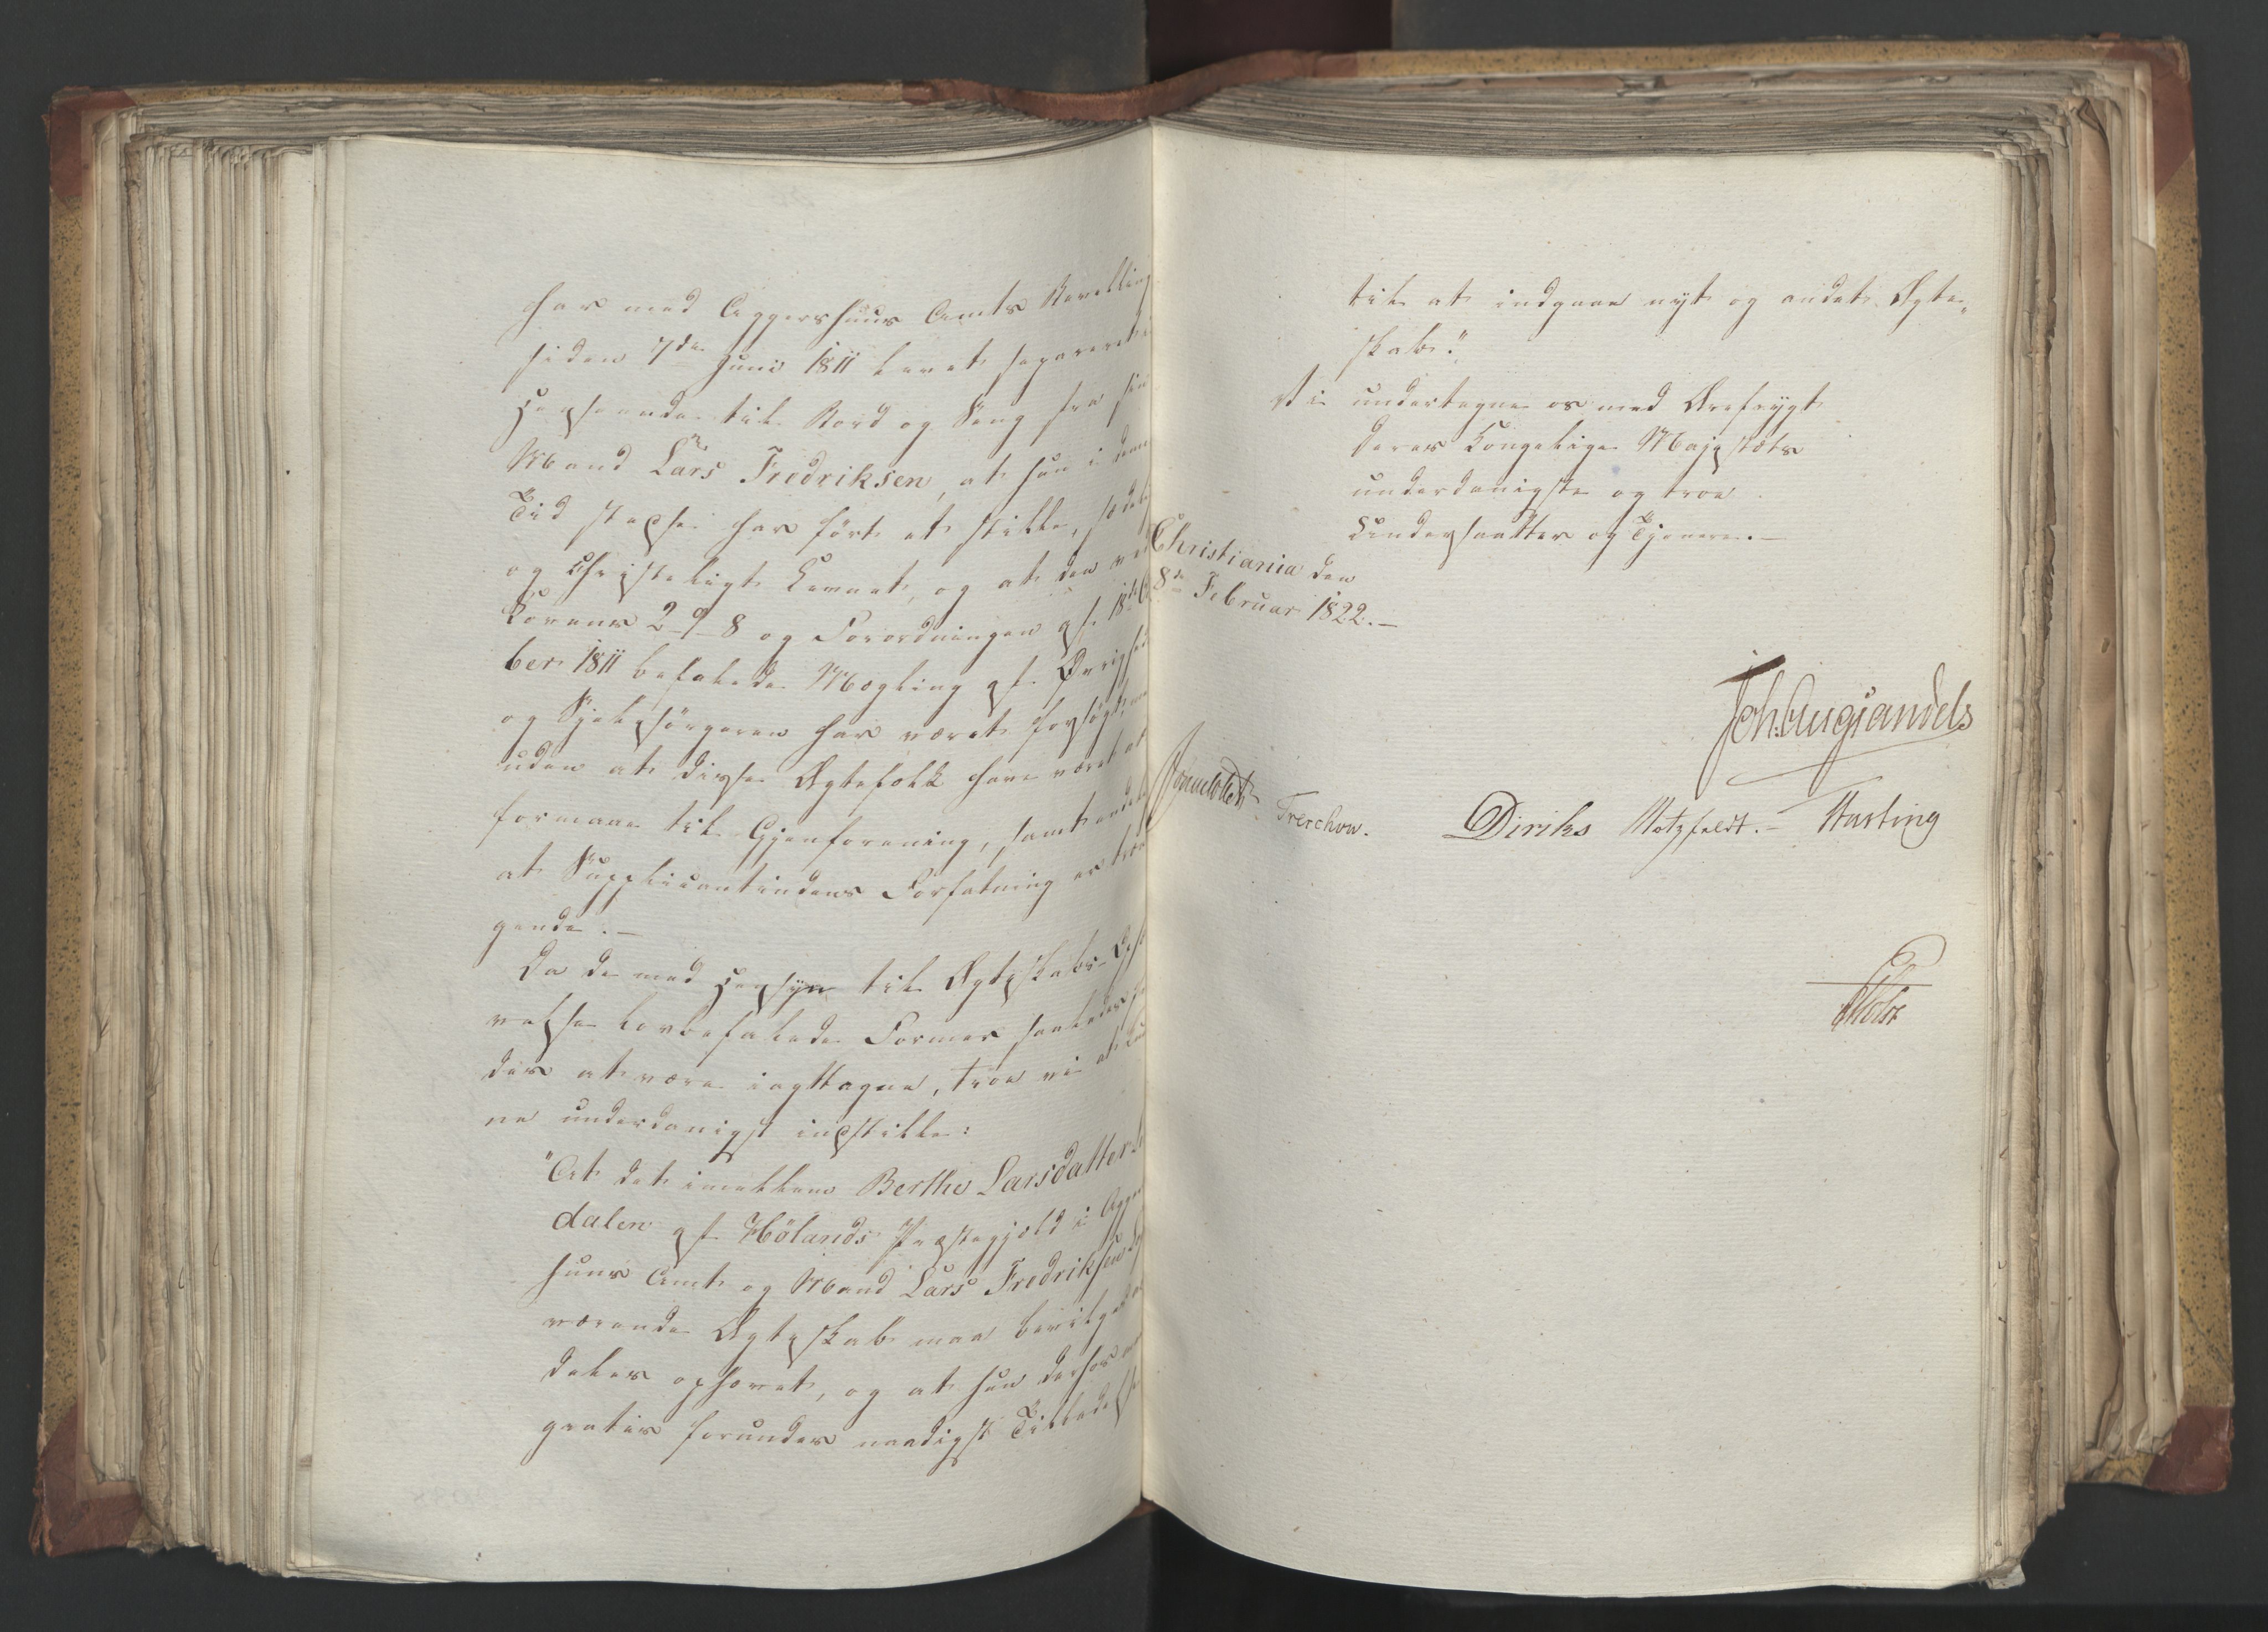 har med Aggershuus Amts Bevilling
siden 7de Juni 1811 levet separeret i
Henseende til Bord og Seng fra sin
Mand Lars Fredriksen, at hun i denne
Tid stedse har ført et stille, sædeli
og Christeligt Levnet, og at den ved
Lovens 2-9-8 og Forordningen af 18de
ber 1811 befalede Mægling af Øvrighed
og Sjelesørgeren har været forsøgt,
uden at disse Ægtefolk have været at
formaae til Gjenforening, samt endelig
at Supplicantindens Forfatning er træn
gende.-
Da de med Hensyn til Ægteskabs-Ophæ
velse lovbefalede Former saaledes
des at være iagttagne, troe vi at kun
ne underdanigst indstille:
"At det imellem Berthe Larsdatter
dalen af Hølands Præstegjeld i Agger
huus Amt og Mand Lars Fredriksen
værende Ægteskab maa bevilges
deles ophævet, og at hun derhos
gratis forundes naadigst Tilladelse
til at indgaae nyt og andet Ægte„
skab."
Vi undertegne os med Ærefrygt
Deres Kongelige Majestæts
underdanigste og troe
Undersaatter og Tjenere.-
Christiania den
8de Februar 1822.-
Joh: Aug Sandels
Sommerhielm Treschow. Diriks Motzfeldt.- Fasting
Holst